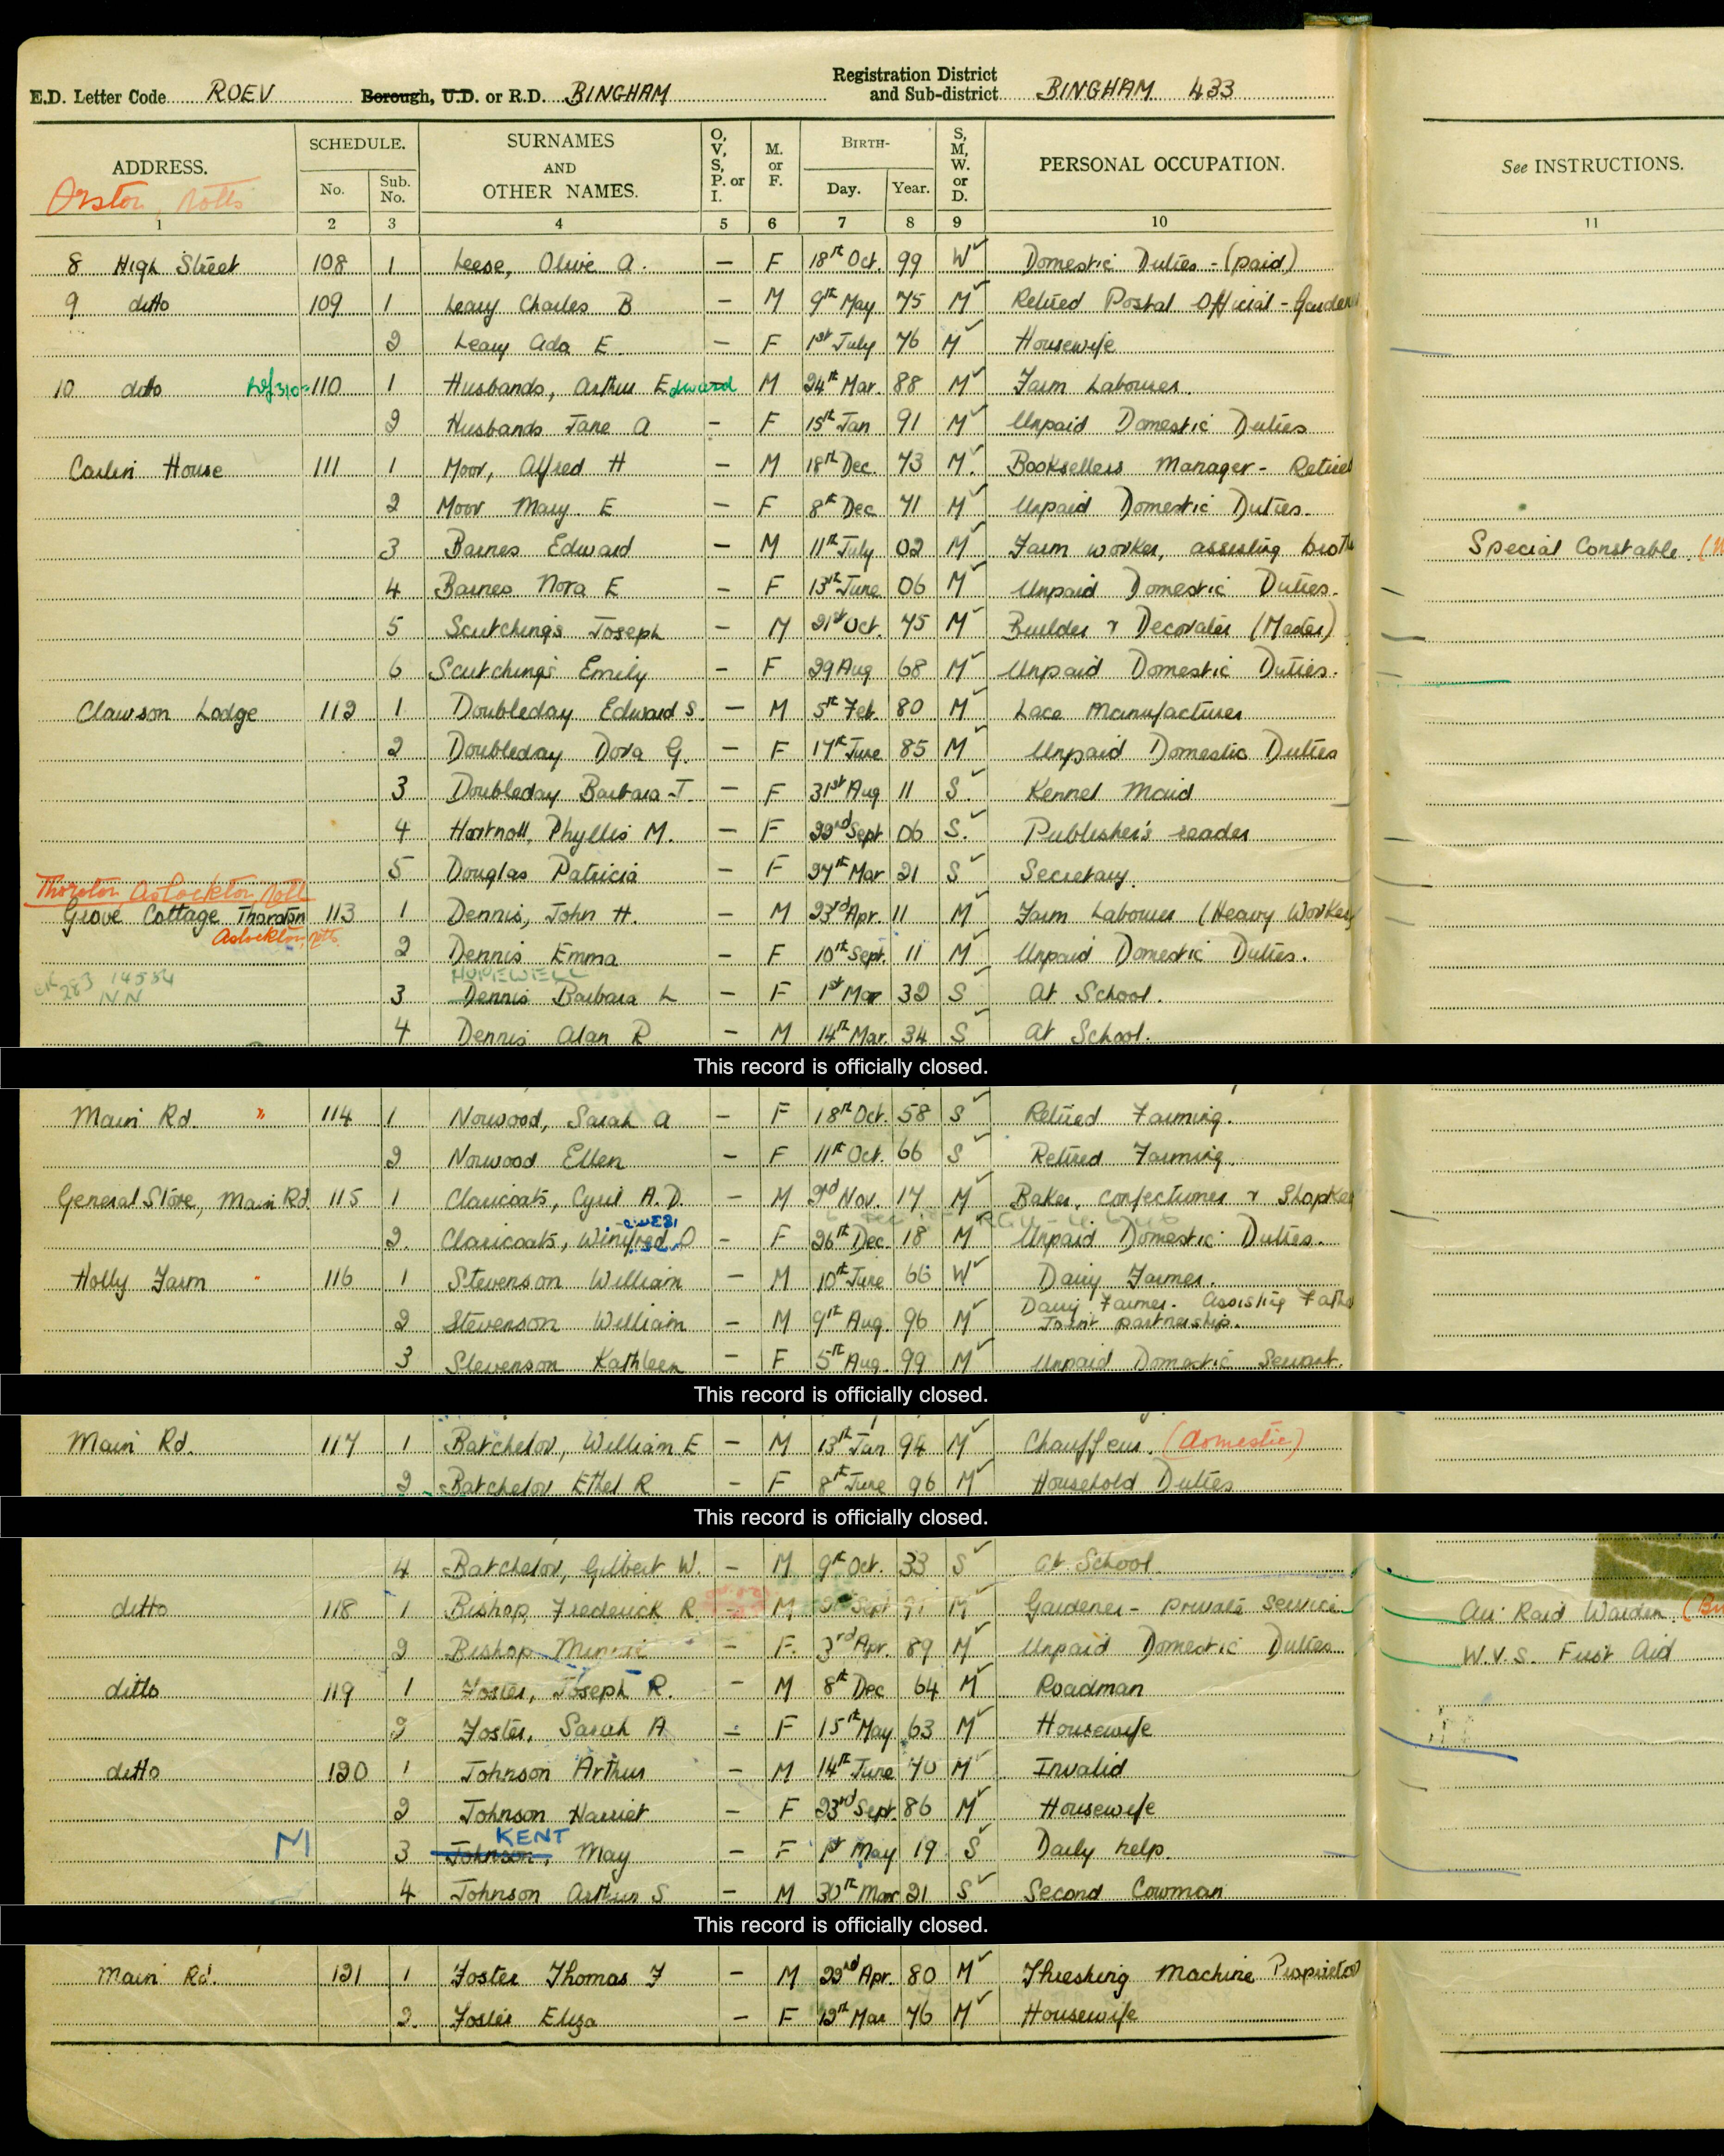 Registration District
E.D. Letter Code ROEV Borough, U.D. or R.D. BINGHAM and Sub-district BINGHAM 433
ADDRESS. SCHEDULE. SURNAMES AND OTHER NAMES. O, V, S, P. or I. M. or F. BIRTH- S, M, W. or D. PERSONAL OCCUPATION. See INSTRUCTIONS.
Orston, Notts No. Sub. No. Day. Year.
1 2 3 4 5 6 7 8 9 10 11
8 High Street 108 1 Leese, Olive A. — F 18th Oct. 99 W Domestic Duties - (paid)
9 ditto 109 1 Leary Charles B — M 9th May 75 M Retired Postal Official - Garden
2 Leary Ada E. — F 1st July 76 M Housewife
10 ditto 110 1 Husbands, Arthur Edward M 24th Mar. 88 M Farm Labourer
2 Husbands Jane A — F 15th Jan 91 M Unpaid Domestic Duties
Carlin House 111 1 Moor, Alfred H — M 18th Dec. 73 M. Booksellers Manager - Retired
2 Moor Mary E — F 8th Dec 71 M Unpaid Domestic Duties.
3 Barnes Edward — M 11th July 02 M Farm worker, assisting broth Special Constable
4 Barnes Nora E — F 13th June 06 M Unpaid Domestic Duties.
5 Scutchings Joseph — M 21st Oct. 75 M Builder & Decorator (Master)
6 Scutchings Emily — F 29 Aug 68 M Unpaid Domestic Duties.
Clawson Lodge 112 1 Doubleday Edward S. — M 5th Feb. 80 M Lace Manufacturer
2 Doubleday Dora G. — F 17th June 85 M Unpaid Domestic Duties
3 Doubleday Barbara J. — F 31st Aug 11 S. Kennel Maid
4 Hartnoll, Phyllis M. — F 22nd Sept 06 S. Publisher's reader
5 Douglas Patricia — F 27th Mar 21 S Secretary.
Thoroton, Aslockton, Notts
Grove Cottage Thoroton 113 1 Dennis, John H. — M 23rd Apr. 11 M Farm Labourer (Heavy Worker)
Aslockton, Notts.
2 Dennis Emma — F 10th Sept. 11 M Unpaid Domestic Duties.
HOPEWELL
283 14584
NN
3 Dennis Barbara L — F 1st Mar 32 S At School.
4 Dennis Alan R — M 14th Mar. 34 S At School.
This record is officially closed.
Main Rd. " 114 1 Norwood, Sarah A — F 18th Oct. 58 S Retired Farming.
2 Norwood Ellen — F 11th Oct. 66 S Retired Farming.
General Store, Main Rd. 115 1 Claricoats, Cyril A.D. — M 2nd Nov. 17 M Baker, confectioner & Shopkee
2. Claricoats, Winifred O — F 26th Dec. 18 M Unpaid Domestic Duties.
Holly Farm " 116 1 Stevenson William — M 10th June 66 W Dairy Farmer.
2 Stevenson William — M 9th Aug. 96 M Dairy Farmer. Assisting Father
Joint partnership.
3 Stevenson Kathleen — F 5th Aug. 99 M Unpaid Domestic Servant.
This record is officially closed.
Main Rd. 117 1 Batchelor, William E — M 13th Jan 94 M Chauffeur. (domestic)
2 Batchelor Ethel R — F 8th June 96 M Household Duties
This record is officially closed.
4 Batchelor, Gilbert W. — M 9th Oct. 33 S At School
ditto 118 1 Bishop, Frederick R. — M Sept 91 M Gardener - private service Air Raid Warden
2 Bishop Minnie — F. 3rd Apr. 89 M Unpaid Domestic Duties W.V.S. First Aid
ditto 119 1 Foster, Joseph R. — M 8th Dec 64 M Roadman
2 Foster, Sarah A — F 15th May 63 M Housewife
ditto 120 1 Johnson Arthur — M 14th June 70 M Invalid
2 Johnson Harriet — F 23rd Sept. 86 M Housewife
KENT
M 3 Johnson, May — F 1st May 19 S Daily help.
4 Johnson Arthur S — M 30th Mar 21 S Second Cowman
This record is officially closed.
Main Rd. 121 1 Foster Thomas F — M 22nd Apr. 80 M Threshing Machine Proprietor
2. Foster Eliza — F 12th Mar 76 M Housewife